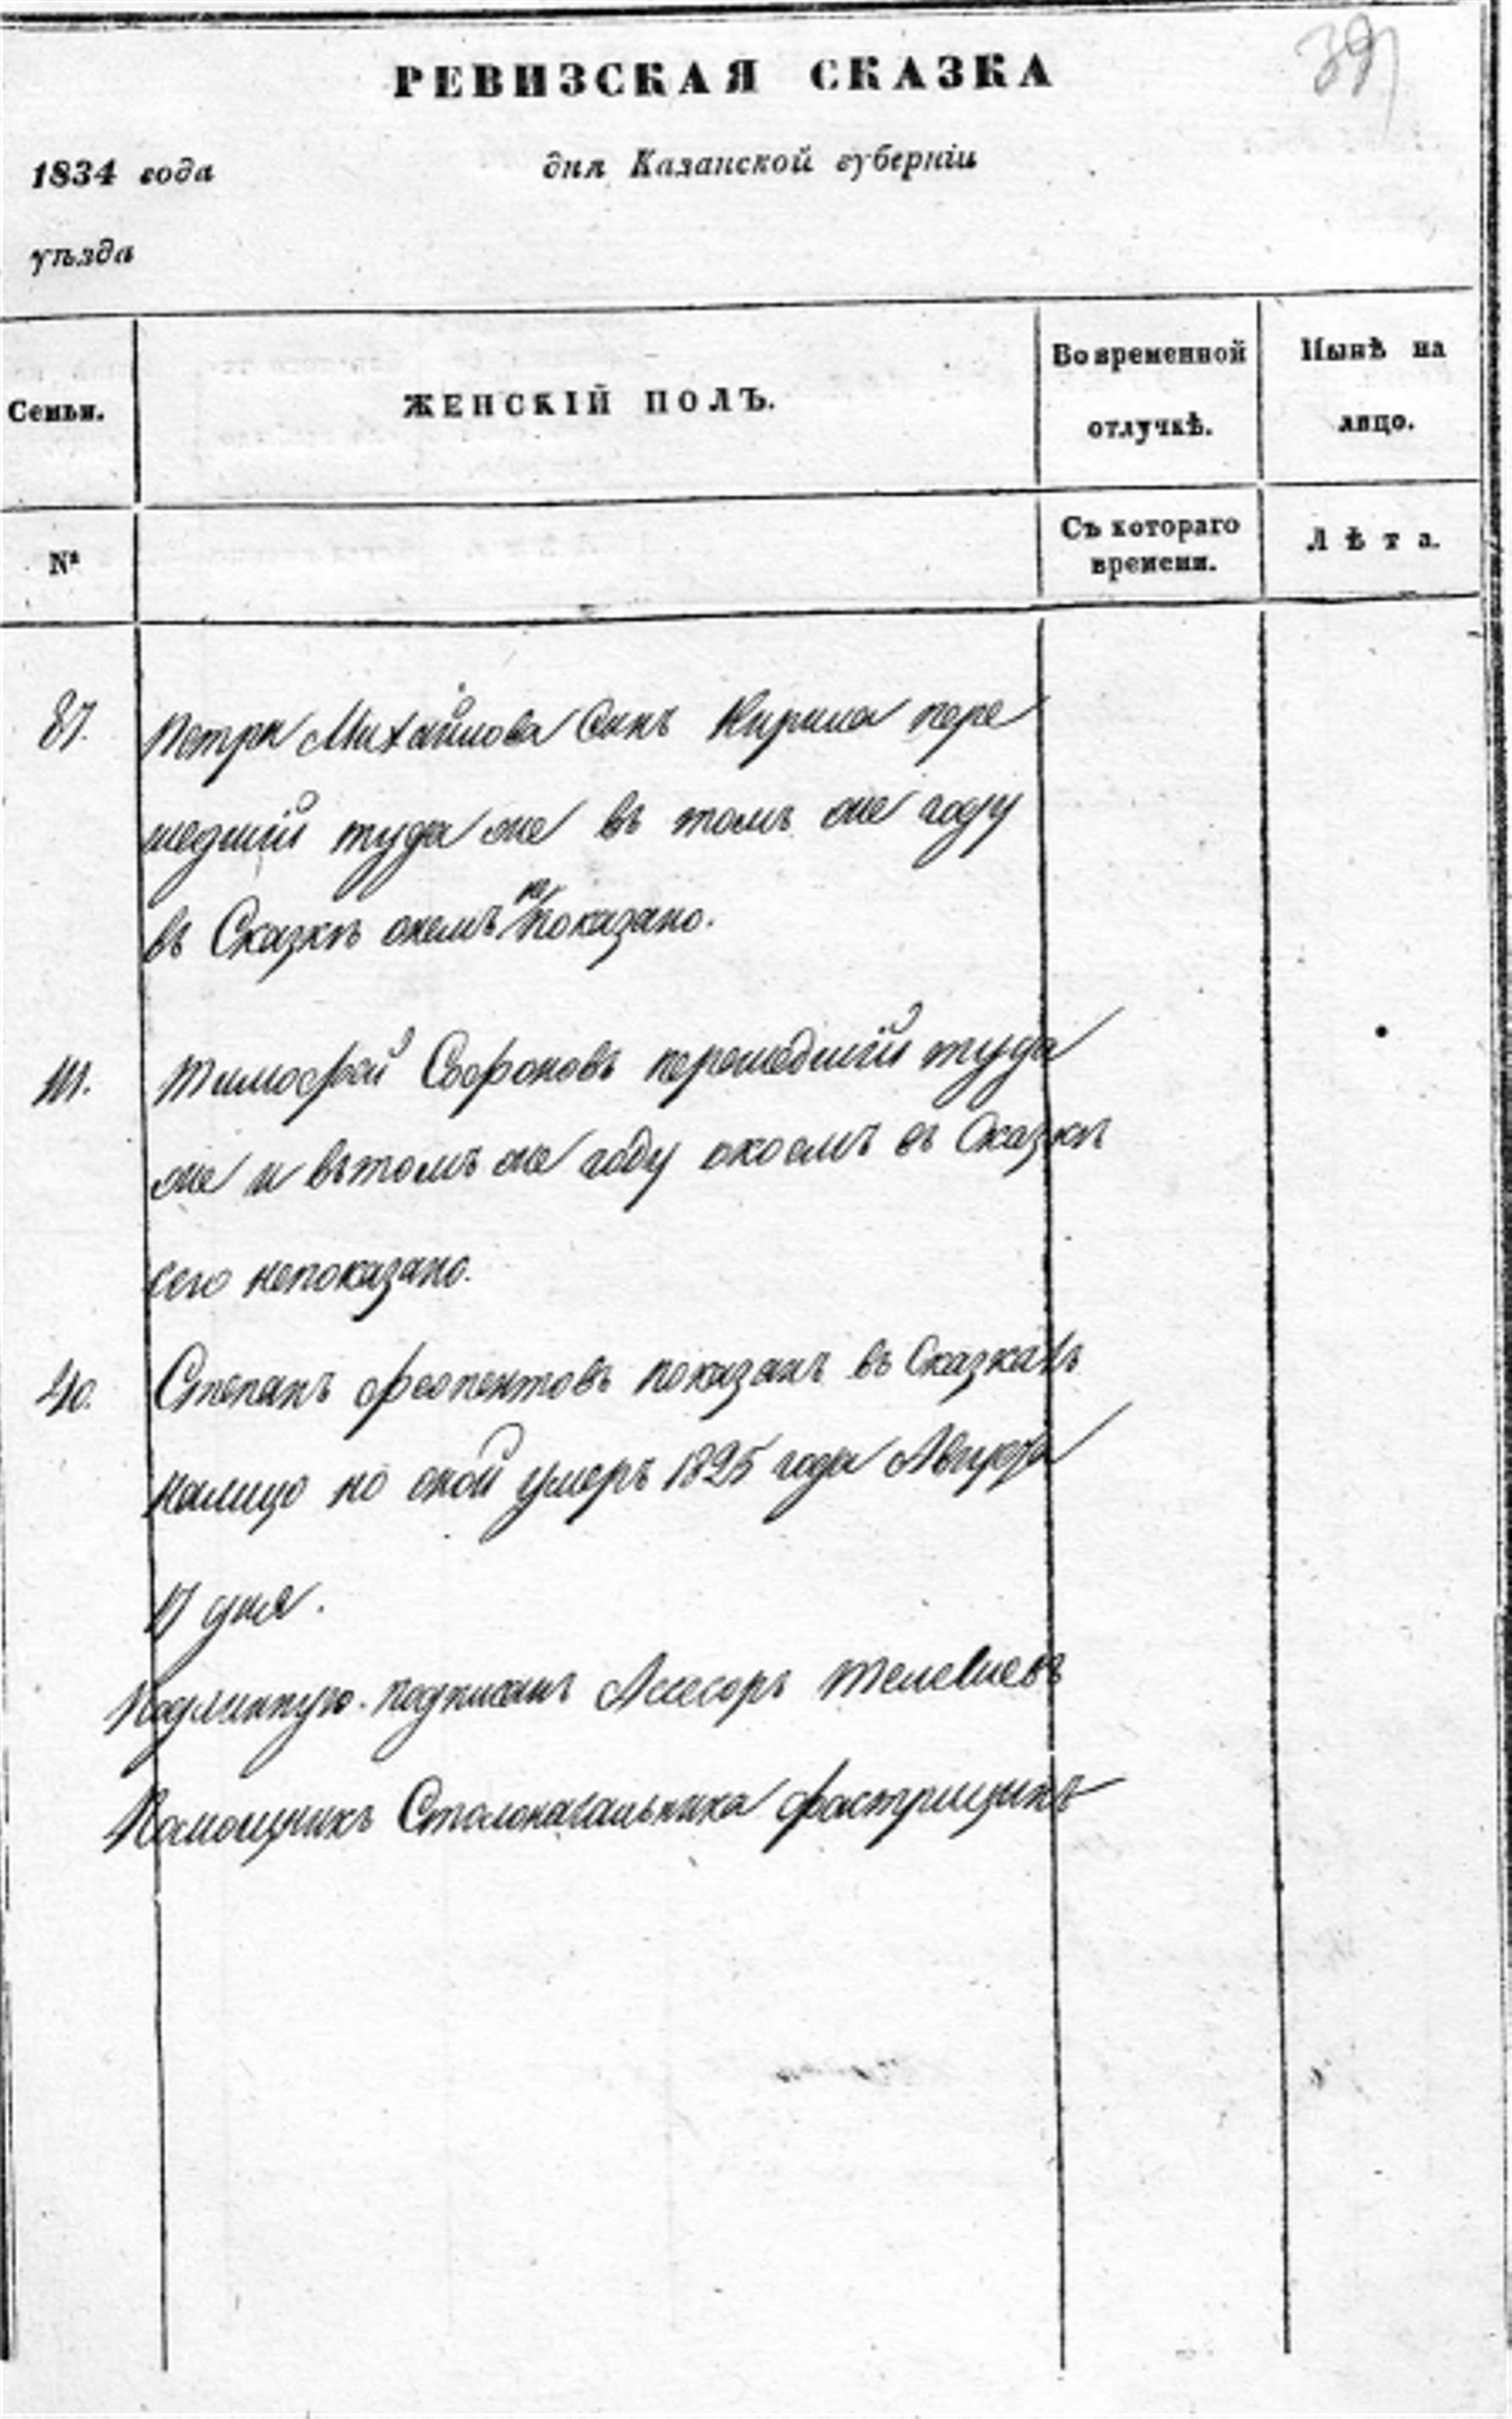 39
РЕВИЗСКАЯ СКАЗКА
1834 года дня Казанской губерніи
уѣзда
Семьи. ЖЕНСКІЙ ПОЛЪ. Во временной отлучкѣ. Нынѣ на лицо.
№ Съ котораго времени. Лѣта.
87. Петра Михайлова Сынъ Кирила пере
шедшій туда же въ томъ же году
въ Сказкѣ онемъ не показано.
111. Тимофей Софоновъ перешедшій туда
же и вътомъ же году окоемъ въ Сказкѣ
сего непоказано.
40. Степанъ Феопентовъ показанъ въ Сказкахъ
налицо но оной умеръ 1825 года Августа
17 дня.
Подлинную подписалъ Ассесоръ
Помощникъ Столоначальника